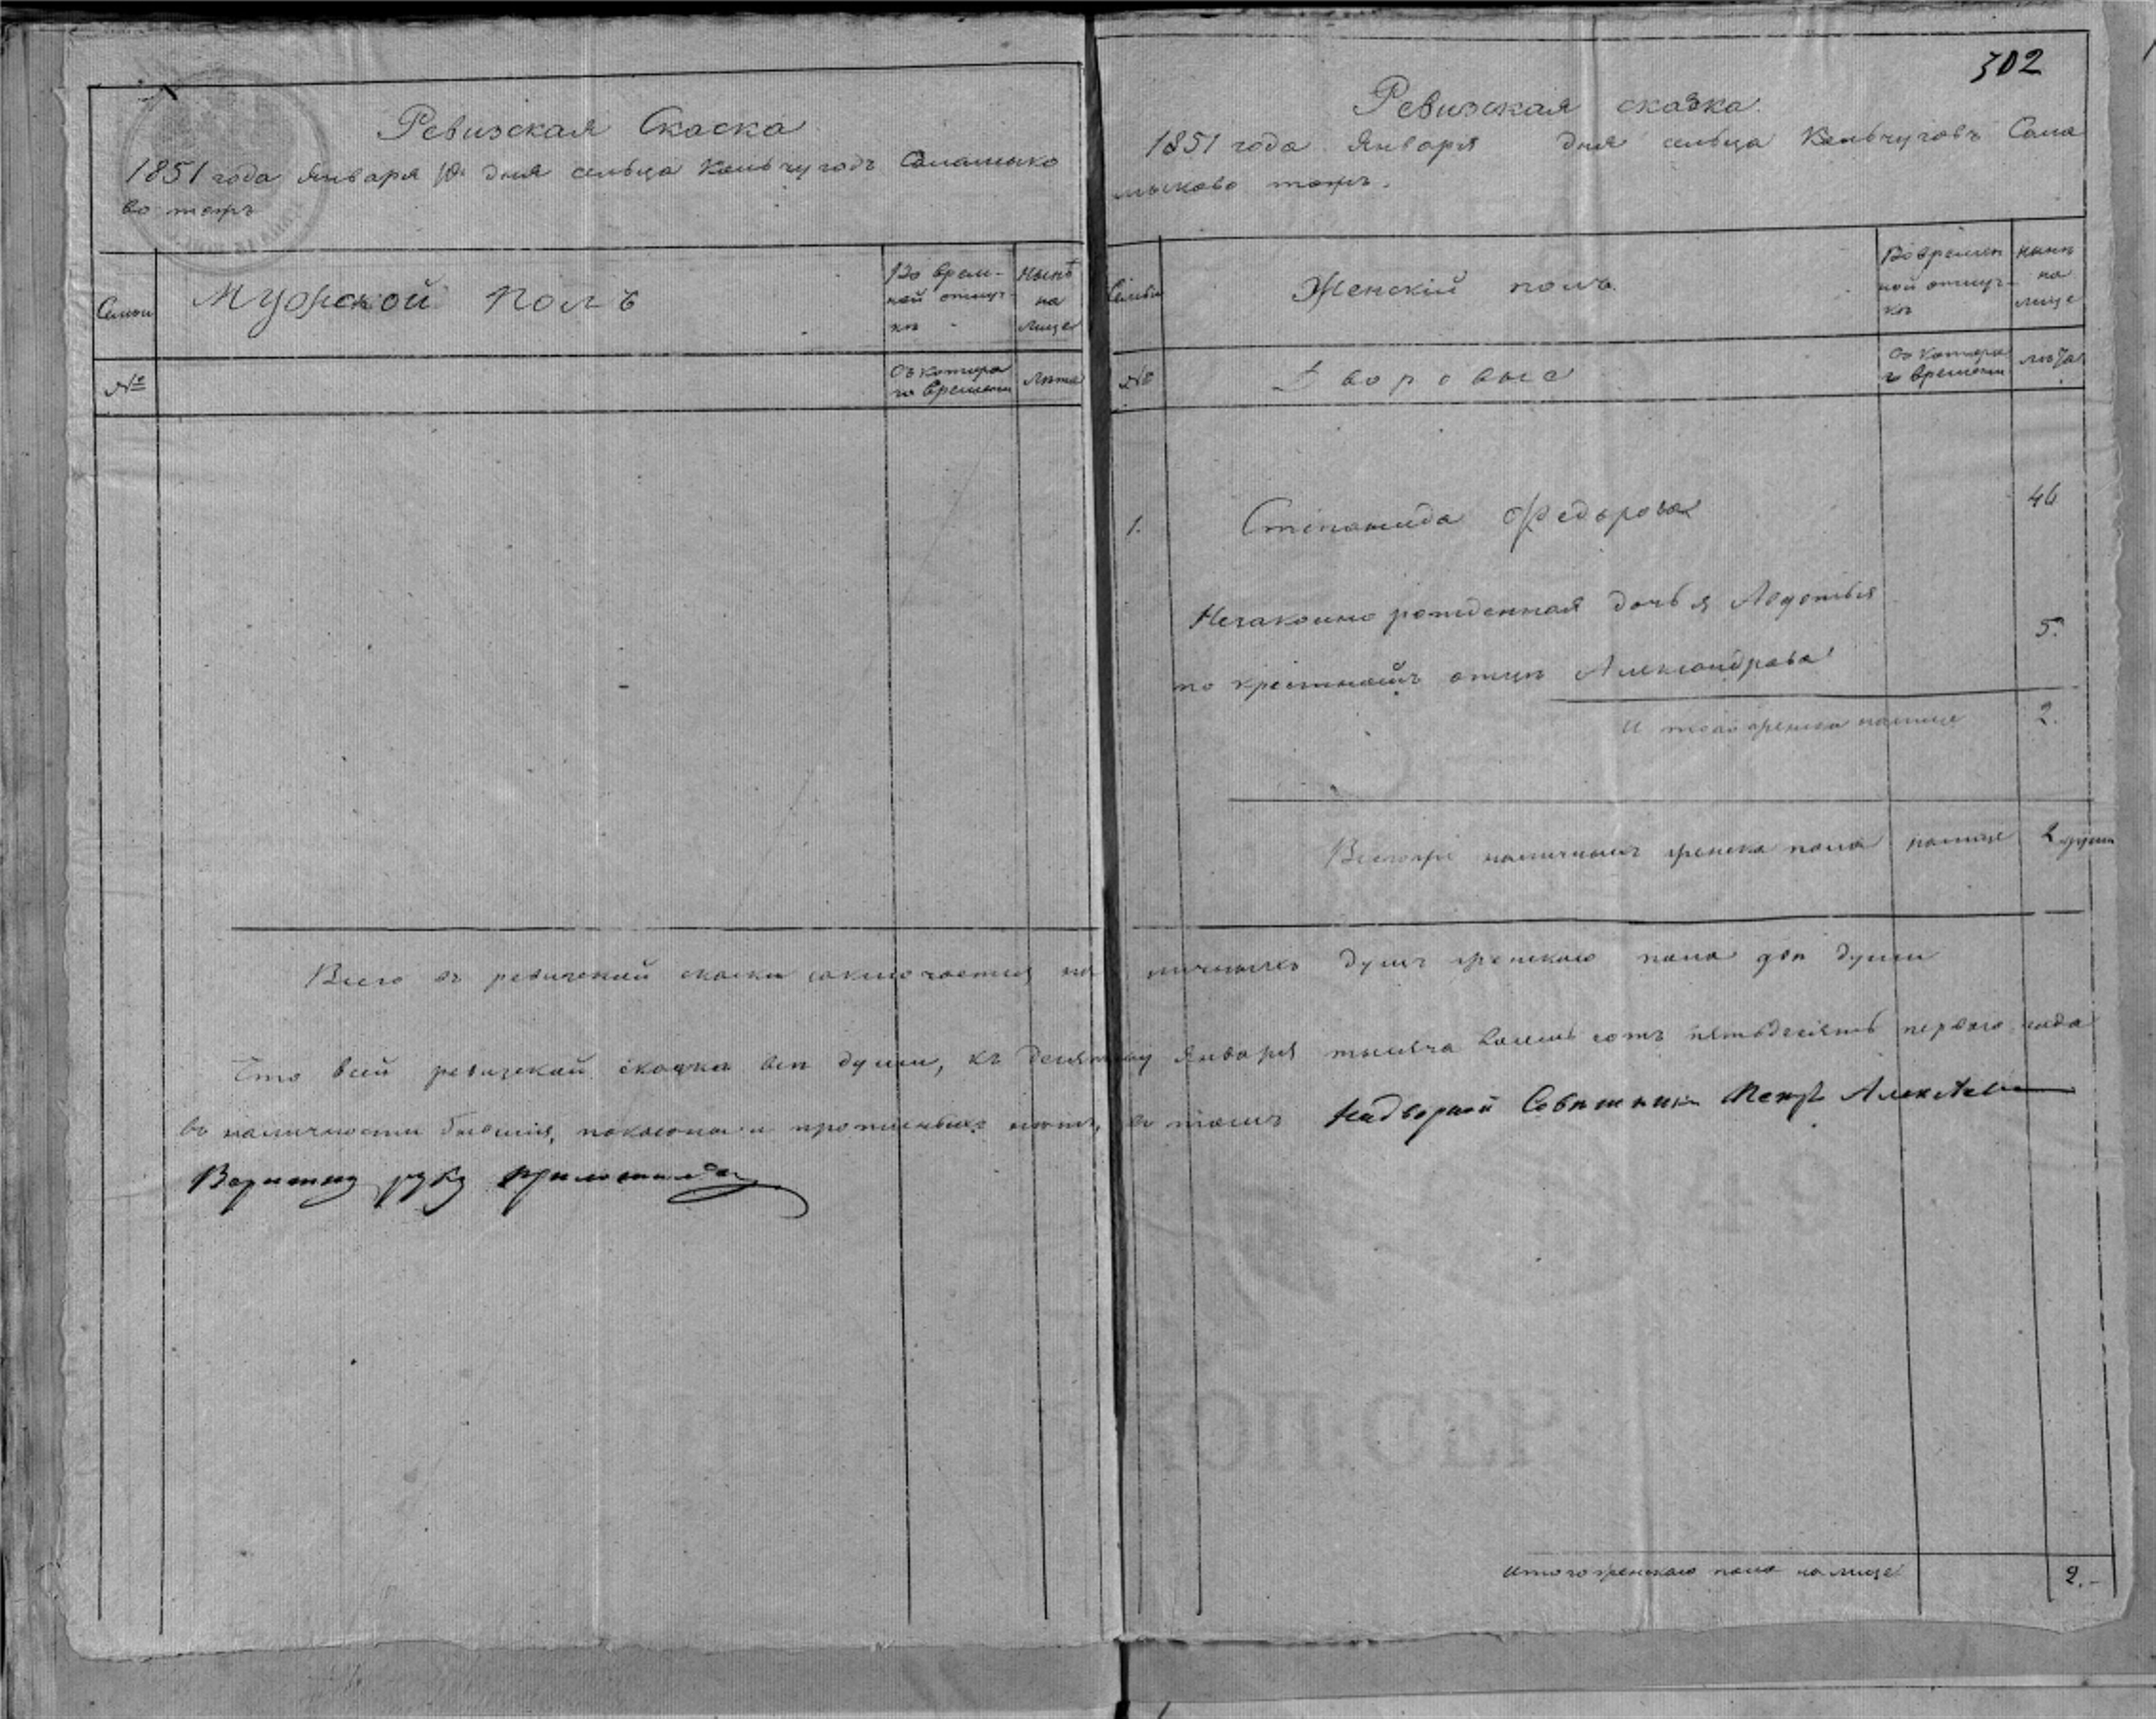 Ревизская Скаска
1851 года Января 10 дня сельца Кольчугодъ Саламыко
во тожъ
Семьи
Мужской Полъ
Во врем-
ной отлуч-
кѣ
Нынѣ
на
лице
№
Съ котора
го времени
Лѣта
302
Ревизская сказка.
1851 года Января дня сельца Кольчуговъ Сала
мыково тожъ.
Семьи
Женскій полъ
Во времен
ной отлуч-
кѣ
нынѣ
на
лице
№
Дворовые
Съ котора
г времени
лѣта
1.
Степанида Федорова
46
Незаконно рожденная дочь я Авдотья
по крестномъ отцѣ Александрова
5.
И того женска налице
2.
Всегоже наличныхъ женска пола налице 2 души
Всего въ ревизской скаски заключается на личныхъ душъ женскаго пола две души
Что всей ревизской скаски все души, къ десятому Января тысяча восемь сотъ пятьдесятъ первого года
въ наличности бывшія, показаны и прописныхъ нѣтъ, въ томъ Надворной Совѣтникъ Петръ Алексѣевъ
руку приложилъ
Итого женскаго пола на лице
2.-